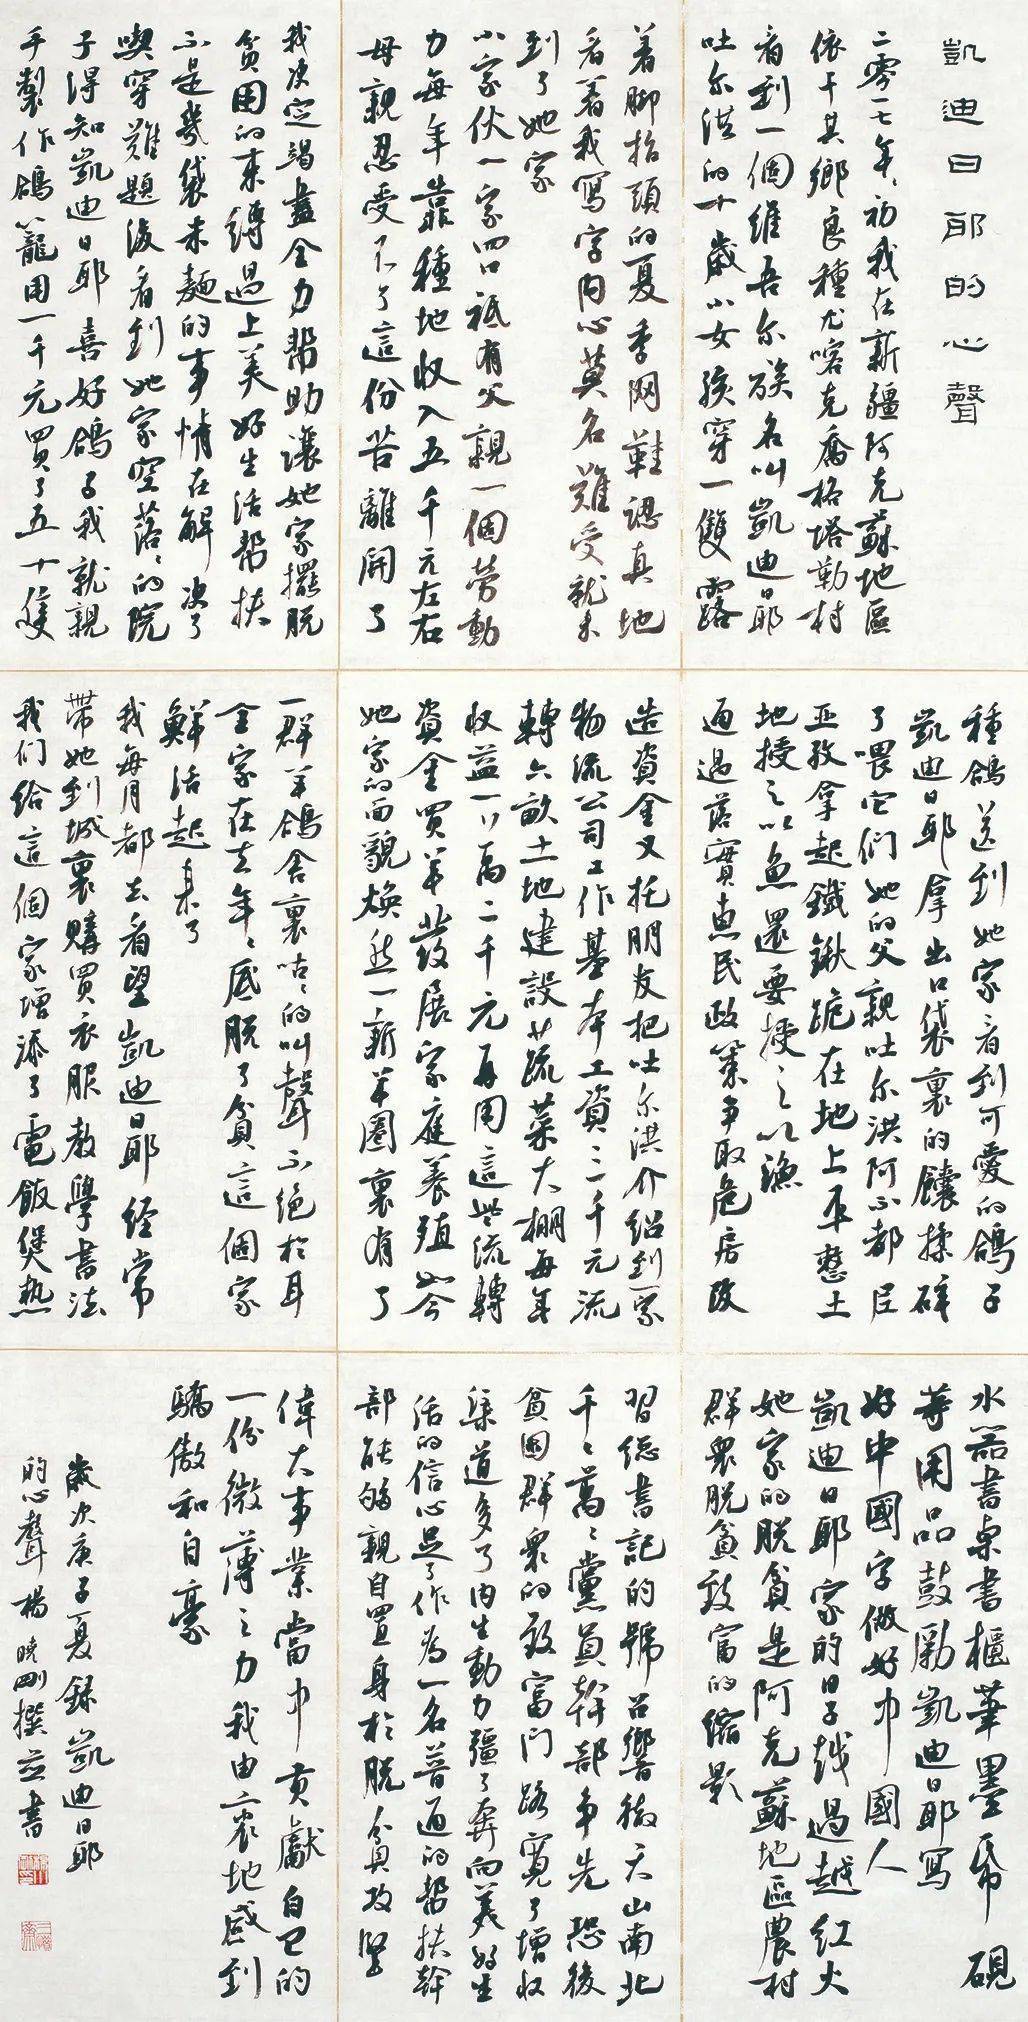 凱迪日耶的心聲
二零一七年初我在新疆阿克蘇地區
依干其鄉良種尤喀克喬格塔勒村
看到一個維吾尔族名叫凱迪日耶
吐尔洪的十歲小女孩穿一雙露
着腳指頭的夏季网鞋認真地
看着我寫字内心莫名難受就来
到了她家
小家伙一家四口祗有父親一個勞動
力每年靠種地收入五千元左右
母親忍受不了這份苦離開了
我决定竭盡全力幫助讓她家擺脱
貧困的束縛過上美好生活幫扶
不是幾袋米麵的事情在解决了
喫穿難題後看到她家空落々的院
子得知凱迪日耶喜好鴿子我就親
手製作鴿籠用一千元買了五十隻
種鴿送到她家看到可愛的鴿子
凱迪日耶拿出口袋裏的饢揉碎
了喂它們她的父親吐尔洪阿不都臣
亚孜拿起鐵鍬跪在地上平整土
地授之以魚還要授之以漁
通過落實惠民政策争取危房改
造資金又托朋友把吐尔洪介紹到一家
物流公司工作基本工資三千元流
轉六畝土地建設蔬菜大棚每年
收益一万二千元再用這些流轉
資金買羊發展家庭養殖如今
她家的面貌焕然一新羊圈裏有了
一群羊鴿舍裏咕々的叫聲不绝於耳
全家在去年々底脱了貧這個家
鮮活起来了
我每月都去看望凱迪日耶经常
带她到城裏購買衣服教學書法
我们给這個家增添了電飯煲热
水器書桌書櫃筆墨紙硯
等用品鼓勵凱迪日耶寫
好中國字做好中國人
凱迪日耶家的日子越過越红火
她家的脱貧是阿克蘇地區農村
群衆脱貧致富的縮影
習總書記的號召響徹天山南北
千々萬々黨員幹部争先恐後
貧困群衆的致富門路寬了增收
渠道多了内生動力强了奔向美好生
活的信心足了作為一名普通的幫扶幹
部能够親自置身於脱貧攻堅
偉大事業當中貢獻自己的
一份微薄之力我由衷地感到
驕傲和自豪
歲次庚子夏録凱迪日耶
的心聲楊曉剛撰并書